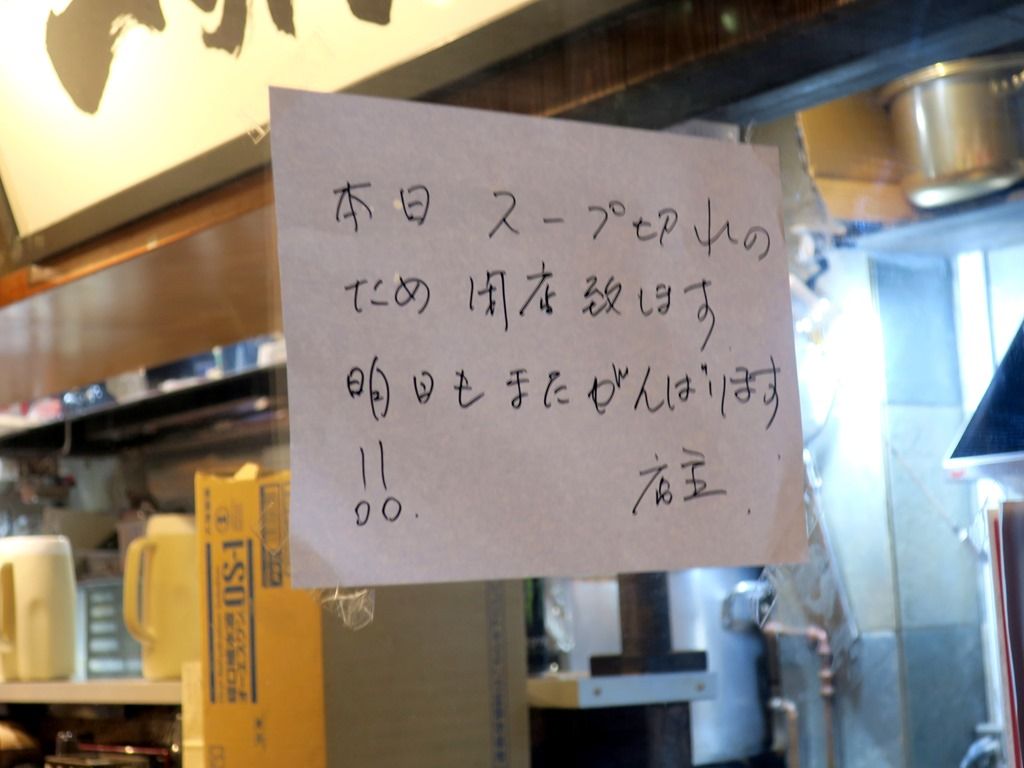 本日 スープ切れの
ため 閉店致します
明日もまたがんばります
!!
店主